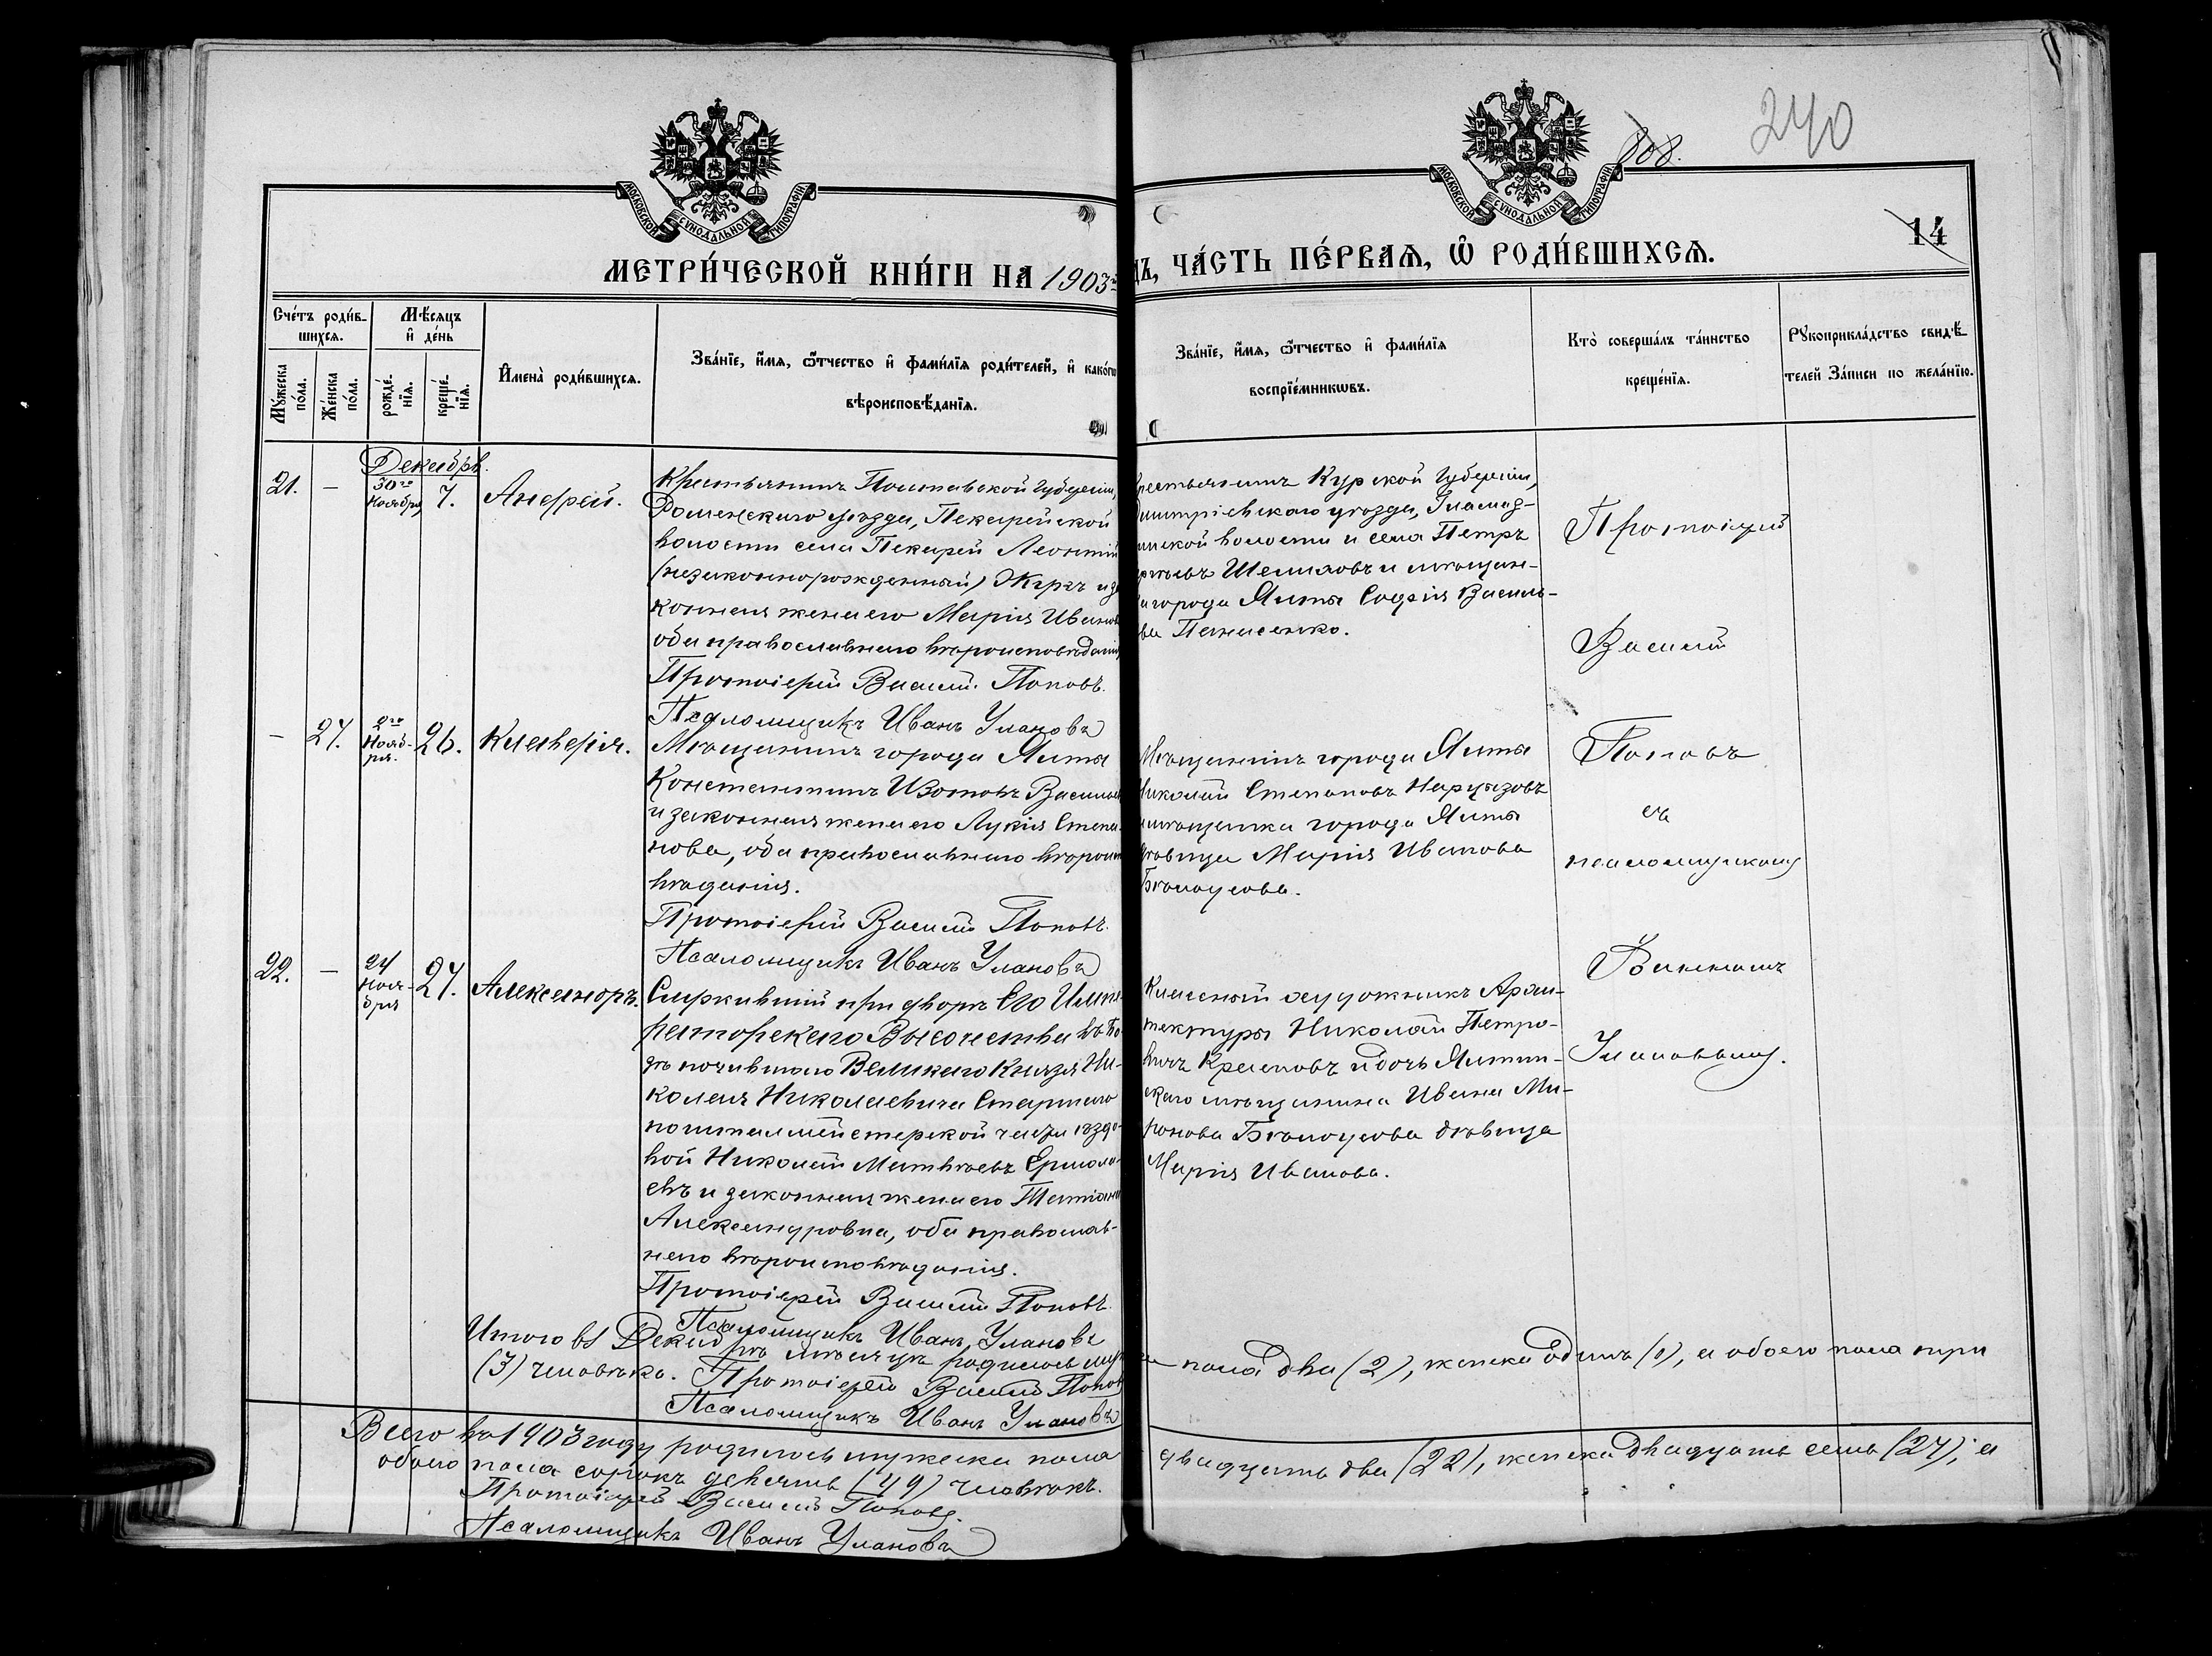 808.
240
14
МОСКОВСКОЙ СѴНОДАЛЬНОЙ ТИПОГРАФІИ
МОСКОВСКОЙ СѴНОДАЛЬНОЙ ТИПОГРАФІИ
МЕТРИ́ЧЕСКОЙ КНИ́ГИ НА 1903й
ДЪ, ЧА́СТЬ ПЕ́РВАѦ, Ѽ РОДИ́ВШИХСѦ.
Сче́тъ роди́в-
шихсѧ.
Мѣ́сѧцъ
и҆ де́нь
Му́жеска
по́ла.
Же́нска
по́ла.
рожде́-
нїѧ.
креще́-
нїѧ.
И҆мена̀ роди́вшихсѧ.
Зва́нїе, и҆́мѧ, ѻ҆́тчество и҆ фами́лїѧ роди́телей, и҆ како́гѡ
вѣроисповѣ́данїѧ.
Зва́нїе, и҆́мѧ, ѻ҆́тчество и҆ фами́лїѧ
воспрїе́мникѡвъ.
Кто̀ соверша́лъ та́инство
креще́нїѧ.
Рꙋкоприкла́дство свидѣ́-
телей за́писи по жела́нїю.
Декабрь.
21. — 30го Ноября 7. Андрей.
Крестьянинъ Полтавской губерніи,
Роменскаго уѣзда, Пекарейской
волости села Пекарей Леонтій
(незаконнорожденный) и за
конная жена его Марія Иванов
оба православнаго вѣроисповѣданія
Протоіерей Василій Поповъ.
Псаломщикъ Иванъ Улановъ
рестьянинъ Курской губерніи,
митріевскаго уѣзда,
инской волости и села Петръ
Шелиховъ и мѣщан-
а города Ялты Софія Василь-
ва Панасенко.
— 27. 2го Нояб-ря. 26. Клавдія.
Мѣщанинъ города Ялты
Константинъ Изотовъ Васильев
и законная жена его Лукія Степа-
нова, оба православнаго вѣроиспо
вѣданія.
Протоіерей Василій Поповъ.
Псаломщикъ Иванъ Улановъ
Мѣщанинъ города Ялты
Николай Степановъ Нарцызовъ
и мѣщанка города Ялты
дѣвица Марія Иванова
Бѣлоусова.
22. — 24 Ноя-бря 27. Александръ.
Служившій при дворѣ Его Импе-
раторскаго Высочества въ Бо-
зѣ почившаго Великаго Князя Ни-
колая Николаевича Старшаго
по шталмейстерской части ѣздо-
вой Николай Матвѣевъ Ермола-
евъ и законная жена его Татіана
Александровна, оба православ-
наго вѣроисповѣданія.
Протоіерей Василій Поповъ.
Псаломщикъ Иванъ Улановъ
Классный художникъ Архи-
тектуры Николай Петро-
вичъ Красновъ и дочь Ялтин-
скаго мѣщанина Ивана Ми-
ронова Бѣлоусова дѣвица
Марія Иванова.
Протоіерей
Василій
Поповъ
съ
псаломщикомъ
Іоанномъ
Улановымъ.
Итого въ Декабрѣ мѣсяцѣ родилось муж
ска пола два (2), женска одинъ (1), а обоего пола три
(3) человѣка. Протоіерей Василій Поповъ
Псаломщикъ Иванъ Улановъ
Всего въ 1903 году родилось мужска пола
двадцать два (22), женска двадцать семь (27), а
обоего пола сорокъ девять (49) человѣкъ.
Протоіерей Василій Поповъ.
Псаломщикъ Иванъ Улановъ